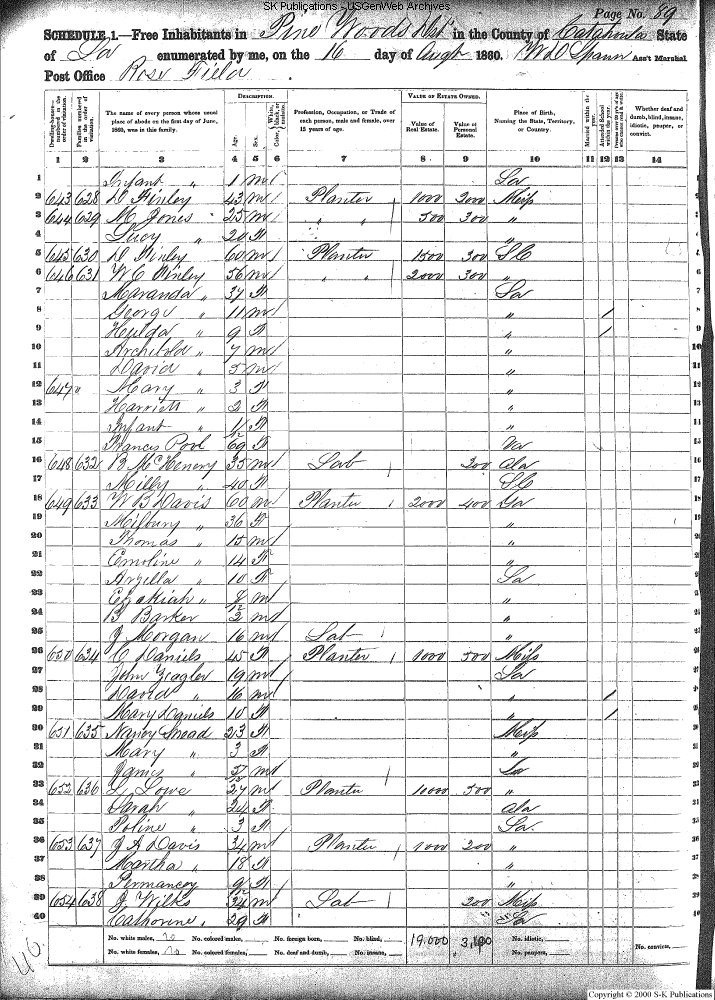 SK Publications - USGenWeb Archives
Page No. 89
SCHEDULE 1.—Free Inhabitants in Pine Woods Dist in the County of Catahoula State
of La enumerated by me, on the 16 day of Augt 1860. Wm Spann Ass't Marshal
Post Office Rose Field.
Dwelling-houses— numbered in the order of visitation.
Families numbered in the order of visitation.
The name of every person whose usual place of abode on the first day of June, 1860, was in this family.
DESCRIPTION.
Age.
Sex.
Color, White, black, or mulatto.
Profession, Occupation, or Trade of each person, male and female, over 15 years of age.
VALUE OF ESTATE OWNED.
Value of Real Estate.
Value of Personal Estate.
Place of Birth, Naming the State, Territory, or Country.
Married within the year.
Attended School within the year.
Whether deaf and dumb, blind, insane, idiotic, pauper, or convict.
1 2 3 4 5 6 7 8 9 10 11 12 13 14
1 Infant " 1 m La 1
2 643 628 D Finley 43 m Planter 1000 300 Miss 2
3 644 629 M Jones 25 m " " 500 300 " 3
4 Lucy " 20 f " 4
5 645 630 D Finley 60 m Planter 1500 300 SC 5
6 646 631 W C Finley 56 m " " 2000 300 " 6
7 Maranda " 37 f La 7
8 George " 11 m " / 8
9 Hulda " 9 f " / 9
10 Archibold " 7 m " 10
11 David " 5 m " 11
12 647 " Mary " 3 f " 12
13 Harriett " 2 f " 13
14 Infant " 1/12 f " 14
15 Frances Pool 69 f Va 15
16 648 632 B McHenery 35 m Lab 200 Ala 16
17 Milly " 40 f SC 17
18 649 633 W B Davis 60 m Planter 2000 400 Ga 18
19 Milbury " 36 f " 19
20 Thomas " 15 m " 20
21 Emoline " 14 f " 21
22 Arzilla " 10 f La 22
23 Ezekiah " 8 m " 23
24 B Barker 2 m " 24
25 J Morgan 16 m Lab " 25
26 650 634 C Daniels 45 f Planter 1000 500 Miss 26
27 John Zeagler 19 m La 27
28 David " 16 m " / 28
29 Mary Daniels 10 f " / 29
30 651 635 Nancy Snead 23 f Miss 30
31 Mary " 3 f " 31
32 James " 5/12 m La 32
33 652 636 L Lowe 27 m Planter 10000 500 " 33
34 Sarah " 24 f Ala 34
35 Poline " 3 f La. 35
36 653 637 J A Davis 34 m Planter 1000 200 " 36
37 Martha " 18 f " 37
38 Permancy 9 f " 38
39 654 638 J Wilks 34 m Lab 200 Miss 39
40 Catherine " 29 f La 40
No. white males, 20 No. colored males, No. foreign born, No. blind, 19,000 3,100 No. idiotic,
No. white females, 20 No. colored females, No. deaf and dumb, No. insane, No. paupers, No. convicts,
Copyright © 2000 S-K Publications